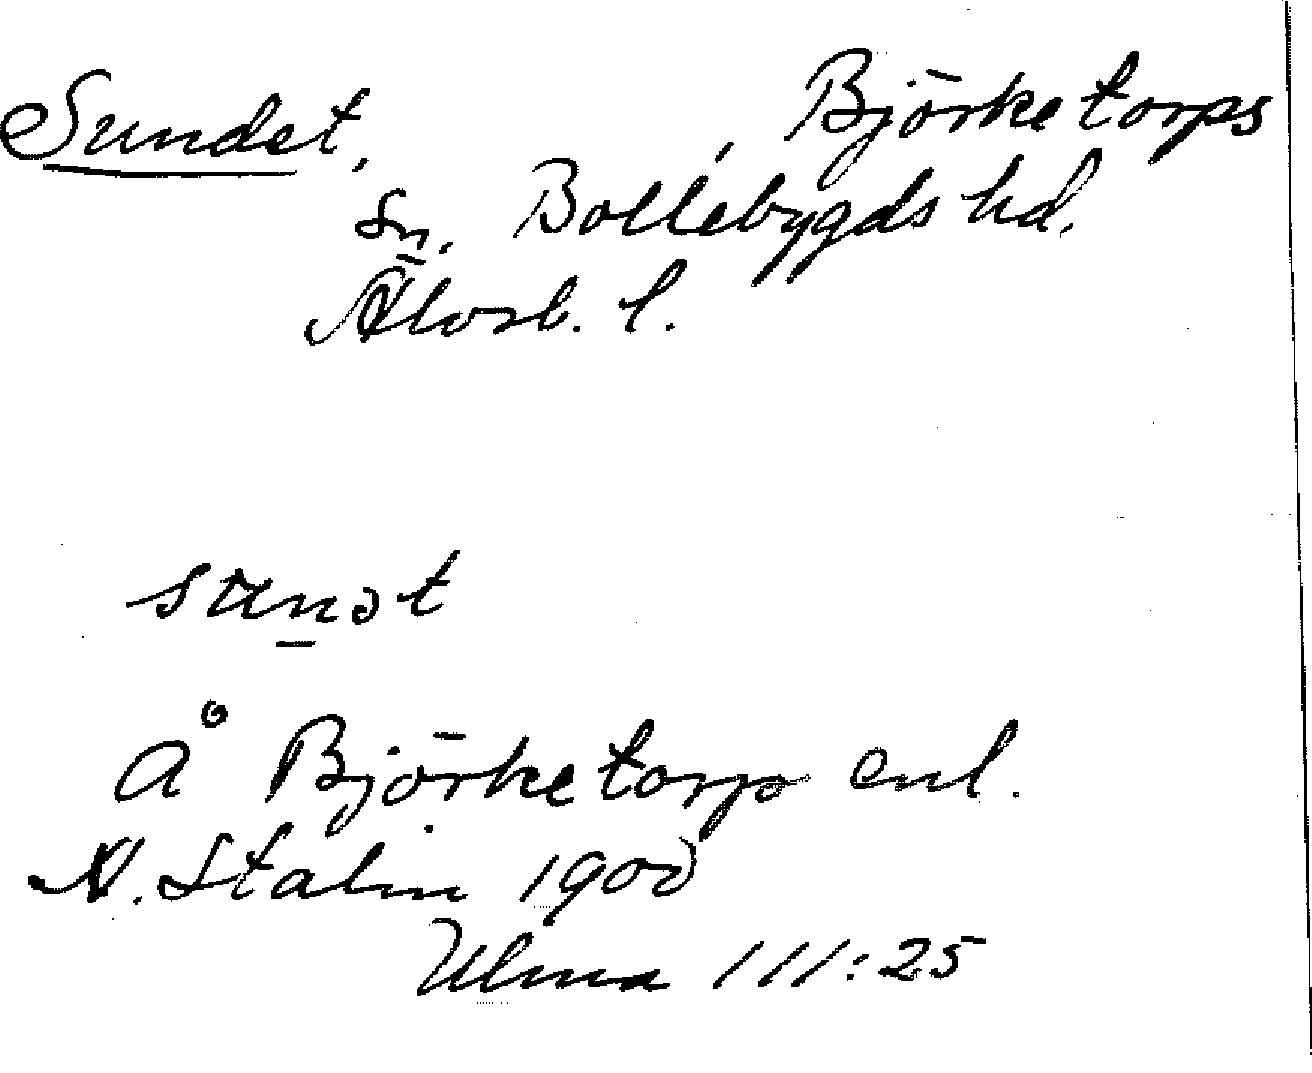 Sundet, , Björketorps
sn. Bollebygds hd.
Älvsb. l.
sunət
å Björketorp enl.
N. Stalin 1900
Ulma 111:25